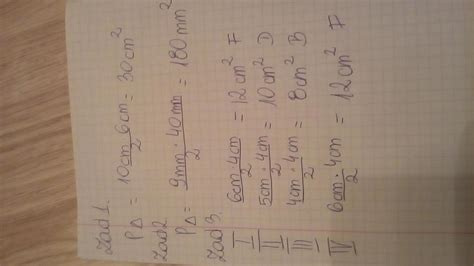 Zad 1.
P△ = 10cm · 6cm / 2 = 30cm²
Zad 2
P△ = 9mm · 40mm / 2 = 180mm²
Zad 3.
I 6cm · 4cm / 2 = 12cm² F
II 5cm · 4cm / 2 = 10cm² D
III 4cm · 4cm / 2 = 8cm² B
IV 6cm · 4cm / 2 = 12cm² F